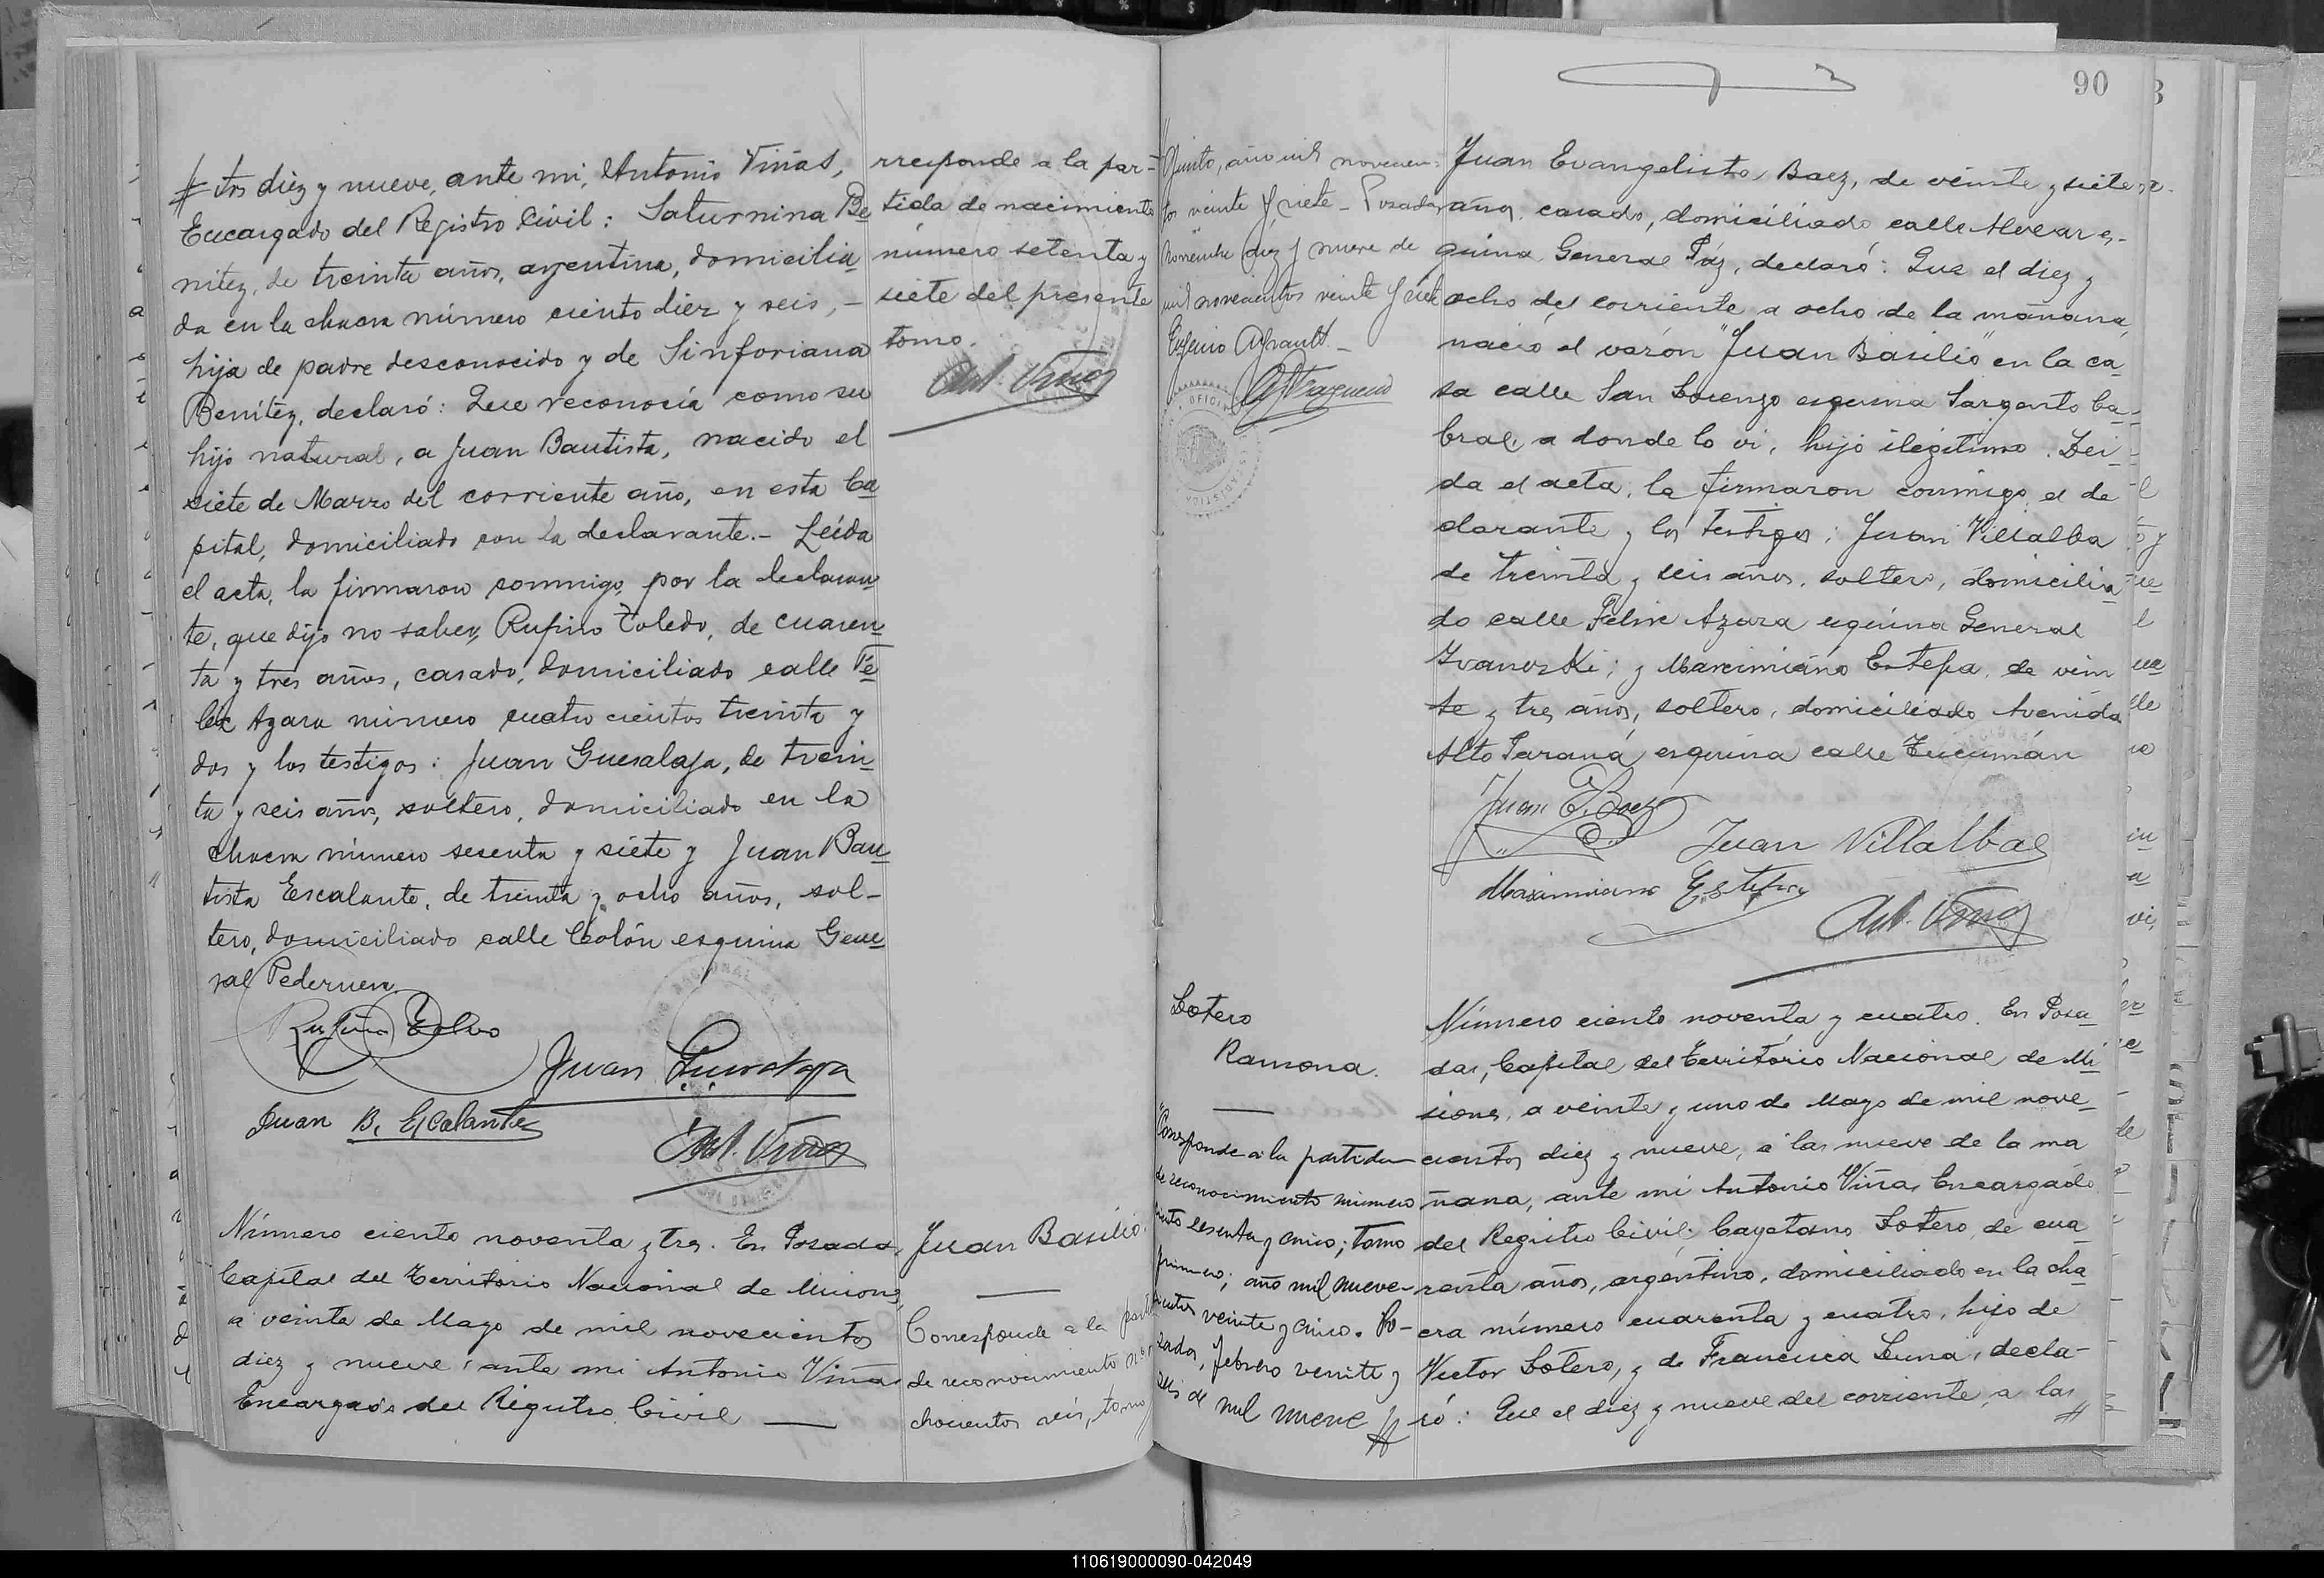 tos diez y nueve, ante mi, Antonio Viñas,
Encargado del Registro Civil: Saturnina Be
nitez, de treinta años, argentina, domicilia
da en la chacra número ciento diez y seis, –
hija de padre desconocido y de Sinforiana
Benítez, declaró: Que reconocía como su
hijo natural, a Juan Bautista, nacido el
siete de Marzo del corriente año, en esta Ca
pital, domiciliado con la declarante.– Leída
el acta, la firmaron conmigo, por la declaran
te, que dijo no saber, Rufino Toledo, de cuaren
ta y tres años, casado, domiciliado calle Fé
lix Azara número cuatrocientos treinta y
dos y los testigos: Juan Guesalaga, de trein
ta y seis años, soltero, domiciliado en la
chacra número sesenta y siete y Juan Bau
tista Escalante, de treinta y ocho años, sol-
tero, domiciliado calle Colón esquina Gene
ral Pedernera
Juan B. Escalante
Ant. Viñas
rresponde a la par-
tida de nacimiento
número setenta y
siete del presente
tomo.
Ant. Viñas
Número ciento noventa y tres. En Posadas,
Capital del Territorio Nacional de Misiones,
a veinte de Mayo de mil novecientos
diez y nueve, ante mi Antonio Viñas
Encargado del Registro Civil —
Juan Basilio.
Corresponde a la parti
de reconocimiento nº
chocientos seis, tomo
90
Quinto, año mil novecien-
tos veinte y siete – Posadas
Noviembre diez y nueve de
mil novecientos veinte y siete
Eugenio
Juan Evangelista Baez, de veinte y siete
años, casado, domiciliado calle Alvear es-
quina General Páz, declaró: Que el diez y
ocho del corriente a ocho de la mañana,
nació el varón "Juan Basilio" en la ca-
sa calle San Lorenzo esquina Sargento Ca-
bral, a donde lo vi, hijo ilegítimo. Lei-
da el acta, la firmaron conmigo el de
clarante y los testigos: Juan Villalba
de treinta y seis años, soltero, domicilia
do calle Felix Azara esquina General
Ivanoski; y Marcimiano Estepa, de vein
te y tres años, soltero, domiciliado Avenida
Alto Paraná esquina calle Tucumán
Juan E. Baez
Juan Villalba
Maximiano Estepa
Ant. Viñas
Sotero
Ramona.
Corresponde a la partida
de reconocimiento número
ciento sesenta y cinco; tomo
primero; año mil nueve-
cientos veinte y cinco. Po-
sadas, febrero veinte y
seis de mil nueve
Número ciento noventa y cuatro. En Posa-
das, Capital del Territorio Nacional de Mi
siones, a veinte y uno de Mayo de mil nove-
cientos diez y nueve, a las nueve de la ma
ñana, ante mi Antonio Viñas Encargado
del Registro Civil: Cayetano Sotero, de cua
renta años, argentino, domiciliado en la cha
cra número cuarenta y cuatro, hijo de
Victor Sotero, y de Francisca Luna, decla-
ró: Que el diez y nueve del corriente, a las
110619000090-042049